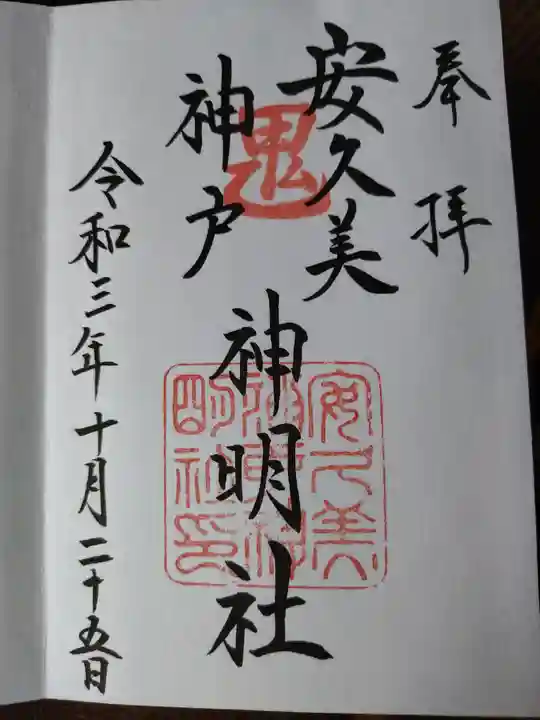 奉拝
安久美
神戸
神明社
令和三年十月二十五日
鬼
安久美
神戸神
明社印